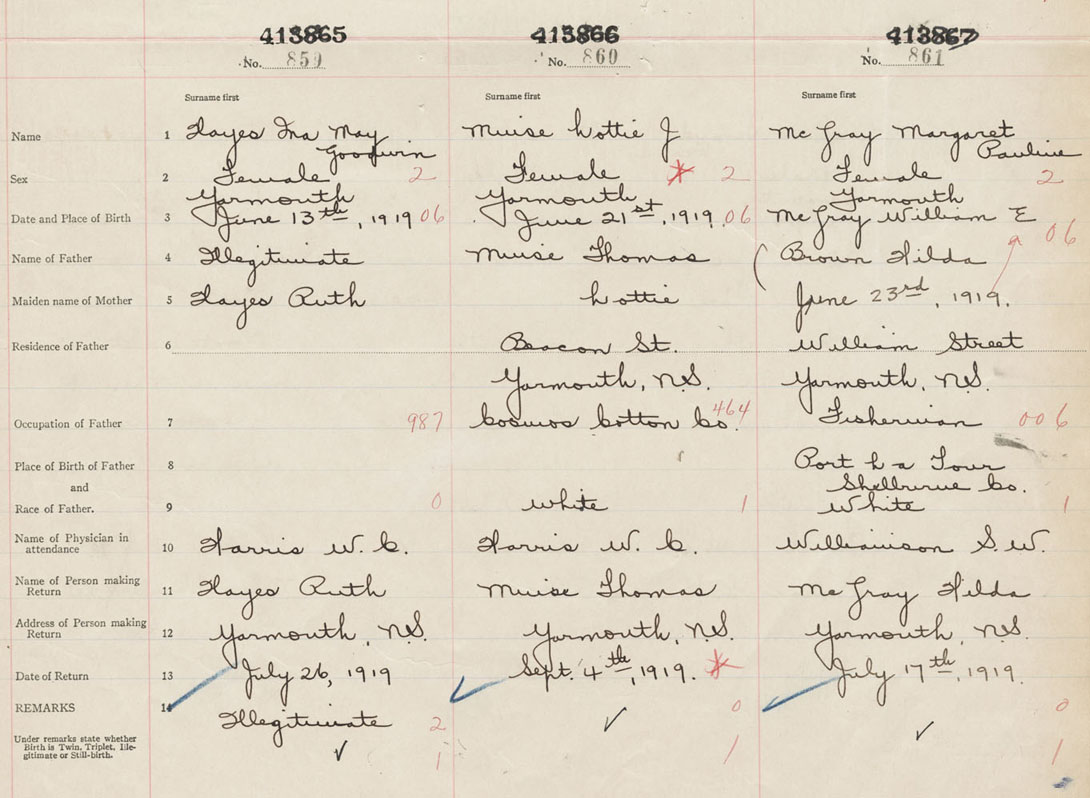 413865 413866 413867
No. 859 No. 860 No. 861
Surname first Surname first Surname first
Name 1 Hayes Ina May Muise Lottie J McGray Margaret
Goodwin Pauline
Sex 2 Female 2 Female * 2 Female 2
Yarmouth Yarmouth Yarmouth
Date and Place of Birth 3 June 13th, 1919 06 June 21st, 1919. 06 McGray William E
06
Name of Father 4 Illegitimate Muise Thomas Brown Hilda
Maiden name of Mother 5 Hayes Ruth Lottie June 23rd, 1919.
Residence of Father 6 Beacon St. William Street
Yarmouth, N.S. Yarmouth, N.S.
Occupation of Father 7 987 Cosmos Cotton Co. 464 Fisherman 006
Place of Birth of Father 8 Port La Tour
and Shelburne Co.
Race of Father. 9 0 White 1 White 1
Name of Physician in
attendance 10 Harris W. C. Harris W. C. Williamson S. W.
Name of Person making
Return 11 Hayes Ruth Muise Thomas McGray Hilda
Address of Person making
Return 12 Yarmouth, N.S. Yarmouth, N.S. Yarmouth, N.S.
Date of Return 13 July 26, 1919 Sept. 4th, 1919. * July 17th, 1919.
REMARKS 14 Illegitimate 2 0 0
Under remarks state whether
Birth is Twin, Triplet, Ille-
gitimate or Still-birth. 1 1 1